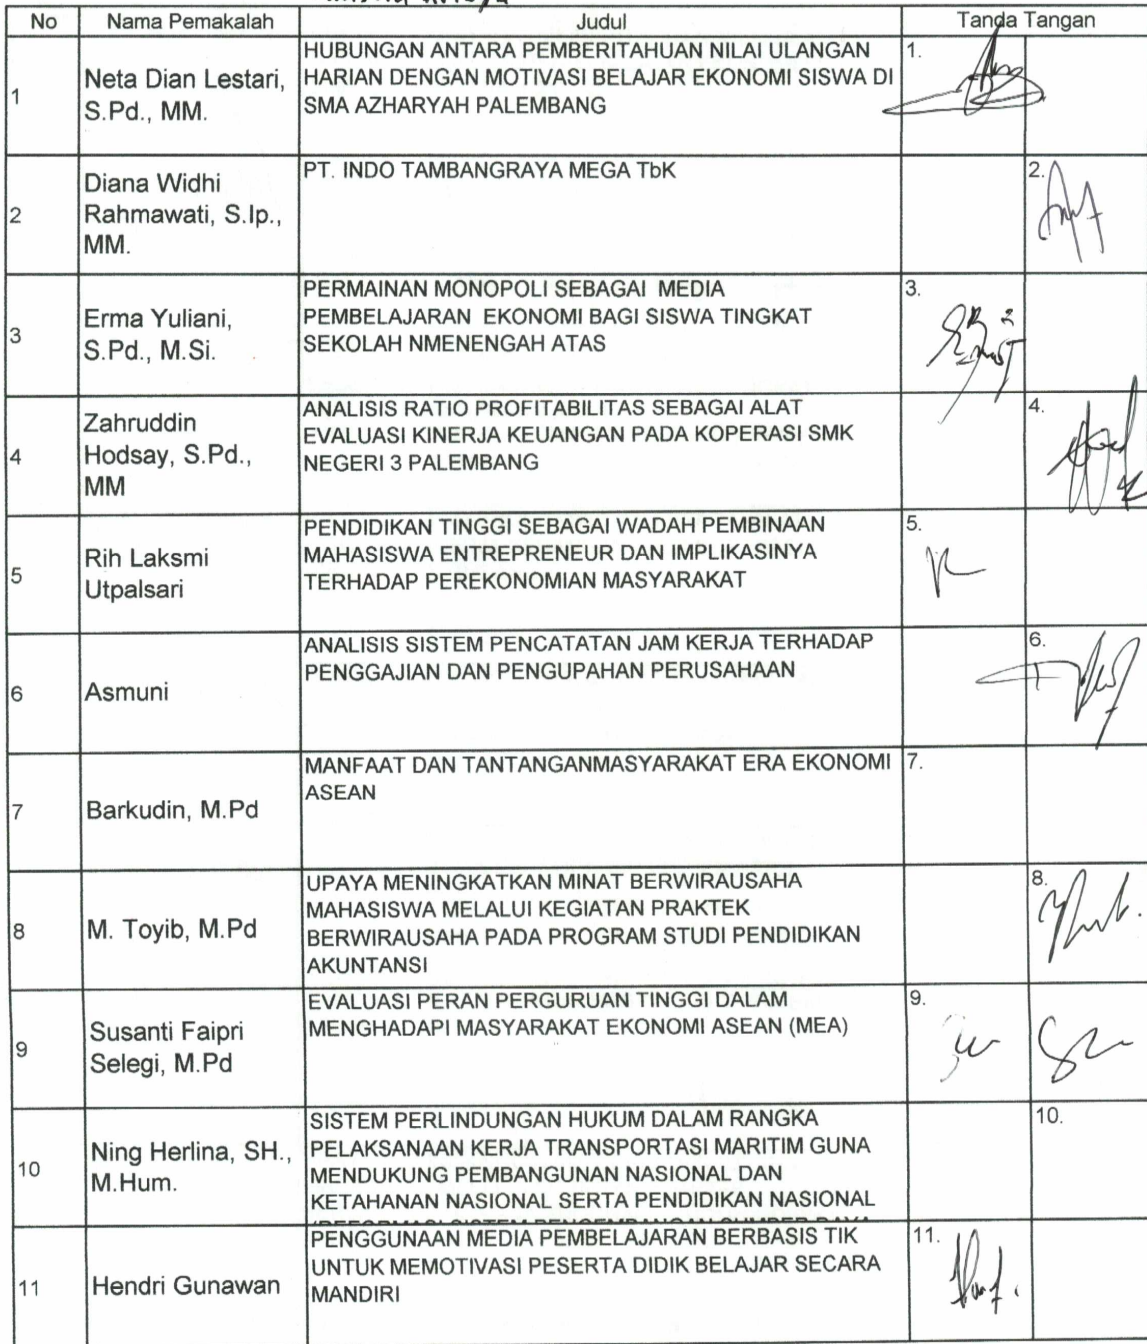 No Nama Pemakalah Judul Tanda Tangan
1 Neta Dian Lestari, S.Pd., MM.
HUBUNGAN ANTARA PEMBERITAHUAN NILAI ULANGAN
HARIAN DENGAN MOTIVASI BELAJAR EKONOMI SISWA DI
SMA AZHARYAH PALEMBANG
1.
2 Diana Widhi
Rahmawati, S.Ip.,
MM.
PT. INDO TAMBANGRAYA MEGA TbK
2.
3 Erma Yuliani,
S.Pd., M.Si.
PERMAINAN MONOPOLI SEBAGAI MEDIA
PEMBELAJARAN EKONOMI BAGI SISWA TINGKAT
SEKOLAH NMENENGAH ATAS
3.
4 Zahruddin
Hodsay, S.Pd.,
MM
ANALISIS RATIO PROFITABILITAS SEBAGAI ALAT
EVALUASI KINERJA KEUANGAN PADA KOPERASI SMK
NEGERI 3 PALEMBANG
4.
5 Rih Laksmi
Utpalsari
PENDIDIKAN TINGGI SEBAGAI WADAH PEMBINAAN
MAHASISWA ENTREPRENEUR DAN IMPLIKASINYA
TERHADAP PEREKONOMIAN MASYARAKAT
5.
6 Asmuni
ANALISIS SISTEM PENCATATAN JAM KERJA TERHADAP
PENGGAJIAN DAN PENGUPAHAN PERUSAHAAN
6.
7 Barkudin, M.Pd
MANFAAT DAN TANTANGANMASYARAKAT ERA EKONOMI
ASEAN
7.
8 M. Toyib, M.Pd
UPAYA MENINGKATKAN MINAT BERWIRAUSAHA
MAHASISWA MELALUI KEGIATAN PRAKTEK
BERWIRAUSAHA PADA PROGRAM STUDI PENDIDIKAN
AKUNTANSI
8.
9 Susanti Faipri
Selegi, M.Pd
EVALUASI PERAN PERGURUAN TINGGI DALAM
MENGHADAPI MASYARAKAT EKONOMI ASEAN (MEA)
9.
10 Ning Herlina, SH.,
M.Hum.
SISTEM PERLINDUNGAN HUKUM DALAM RANGKA
PELAKSANAAN KERJA TRANSPORTASI MARITIM GUNA
MENDUKUNG PEMBANGUNAN NASIONAL DAN
KETAHANAN NASIONAL SERTA PENDIDIKAN NASIONAL
10.
11 Hendri Gunawan
PENGGUNAAN MEDIA PEMBELAJARAN BERBASIS TIK
UNTUK MEMOTIVASI PESERTA DIDIK BELAJAR SECARA
MANDIRI
11.